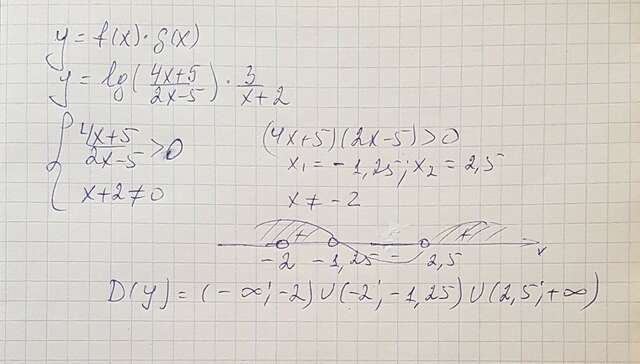 y = f(x)·g(x)
y = lg((4x+5)/(2x-5)) · 3/(x+2)
{ (4x+5)/(2x-5) > 0
(4x+5)(2x-5) > 0
x₁ = -1,25; x₂ = 2,5
x+2 ≠ 0
x ≠ -2
+ - +
-2 -1,25 2,5 x
D(y) = (-∞; -2) ∪ (-2; -1,25) ∪ (2,5; +∞)